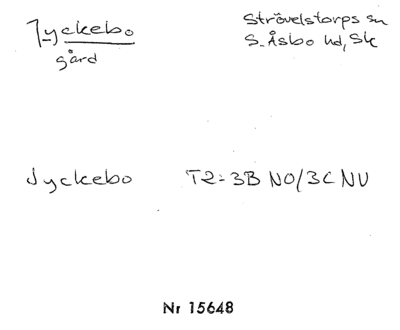 Jyckebo
gård
Strövelstorps sn
S. Åsbo hd, Sk
Jyckebo T2-3B NO/3C NV
Nr 15648